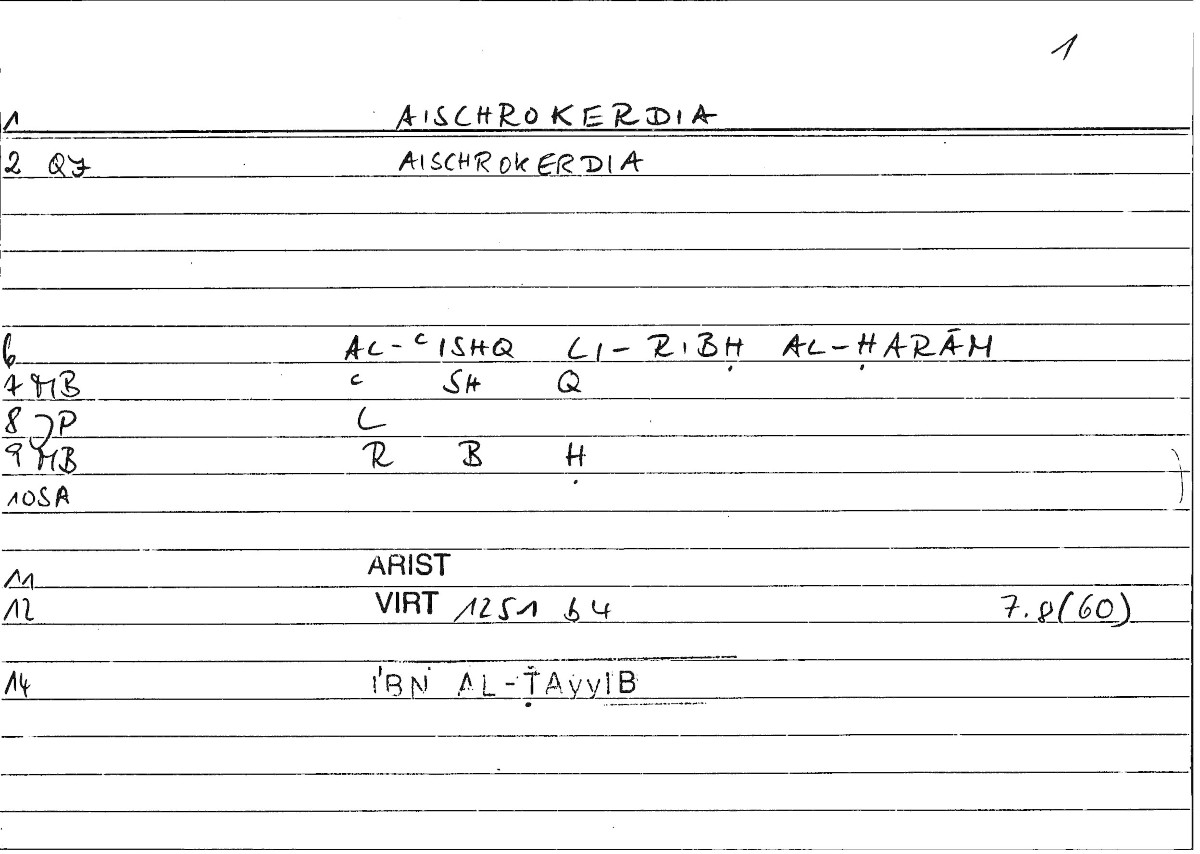 1
1 AISCHROKERDIA
2 QF AISCHROKERDIA
6 AL-ʿISHQ LI-RIBḤ AL-ḤARĀM
7 MB ʿ SH Q
8 JP L
9 MB R B Ḥ
10 SA
11 ARIST
12 VIRT 1251 b 4 7.8(60)
14 IBN AL-ṬAYYIB